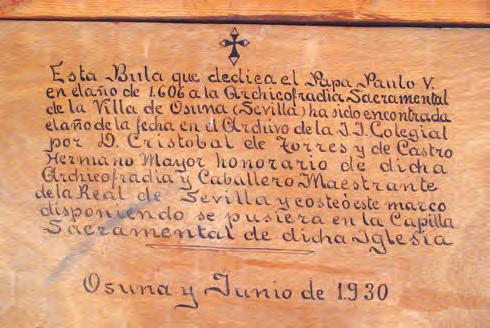 Esta Bula que dedica el Papa Paulo V.
en el año de 1.606 a la Archicofradia Sacramental
de la Villa de Osuna (Sevilla) ha sido encontrada
el año de la fecha en el Archivo de la I.I. Colegial
por D. Cristobal de Torres y de Castro
Hermano Mayor honorario de dicha
Archicofradia y Caballero Maestrante
de la Real de Sevilla y costeó este marco
disponiendo se pusiera en la Capilla
Sacramental de dicha Iglesia
Osuna y Junio de 1.930